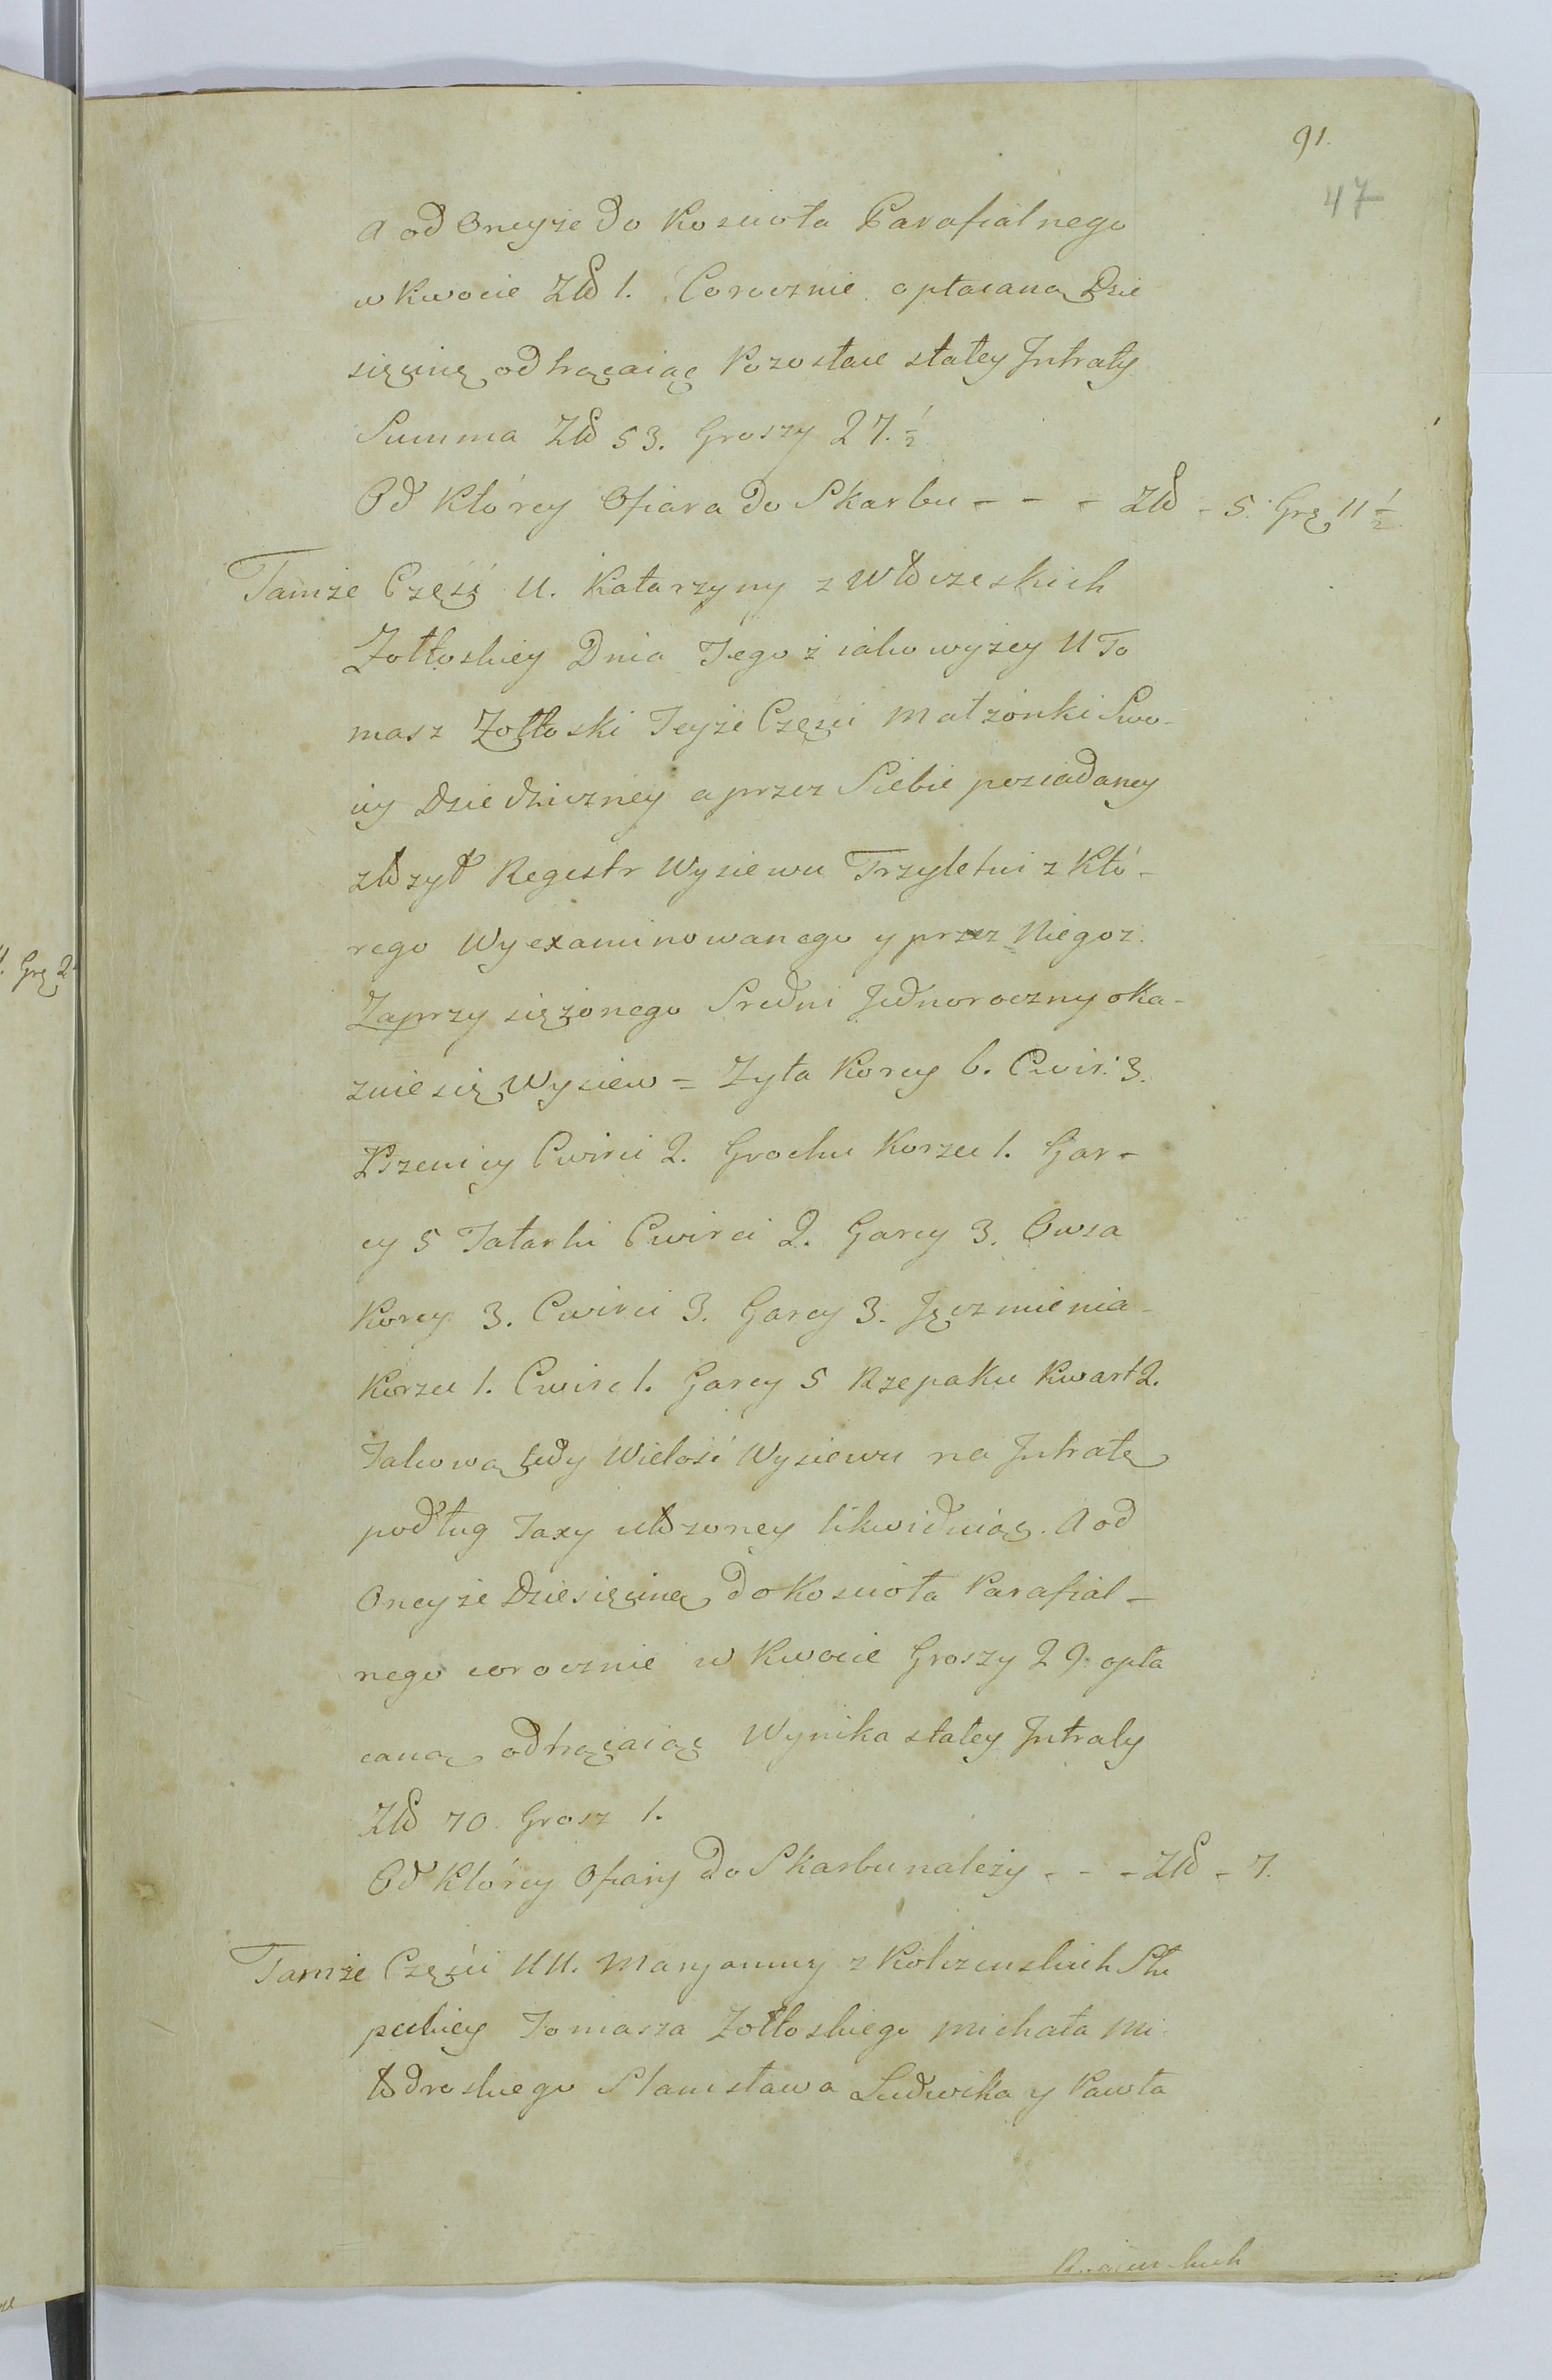 91.
47
A od Oneyże do Kościoła Parafialnego
w Kwocie Zło 1. Corocznie opłacaną Dzie
sięcinę odtrącaiąc Pozostaie stałey Jntraty
Summa Zło 53. Groszy 27. ½
Od Którey Ofiara do Skarbu - - - Zło - 5. Grę 11 ½
Tamże Częźć U. Katarzyny z Włoczeskich
Zołłoskiey Dnia Tegoż iako wyżey U To
masz Zołłoski Teyże Częźci Małżonki Swo-
iey Dziedziczney a przez Siebie posiadaney
złożył Regestr Wysiewu Trzyletni z Któ-
rego Wyexaminowanego y przez Niegoz
Zaprzysiężonego Sredni Jednoroczny oka-
zuie się Wysiew = Zyta Korcy 6. Cwir: 3.
Pszenicy Cwirci 2. Grochu Korzec 1. Gar-
cy 5 Tatarki Cwirci 2. Garcy 3. Owsa
Korcy 3. Cwirci 3. Garcy 3. Jęczmienia
Korzec 1. Cwirc 1. Garcy 5 Rzepaku Kwart 2.
Takową tedy Wielość Wysiewu na Jntratę
podług Taxy ułożoney likwiduiąc. A od
Oneyże Dziesięcinę do Kościoła Parafial-
nego corocznie w Kwocie Groszy 29. opła
caną odtrącaiąc Wynika stałey Jntraty
Zło 70. Grosz 1.
Od Którey Ofiary do Skarbu należy - - - Zło - 7.
Tamże Częźci UU. Maryanny z Kobrzenskich Słu
peckiey Tomasza Zołłoskiego Michała Mi
łodroskiego Stanisława Ludwika y Pawła
! Grę 2